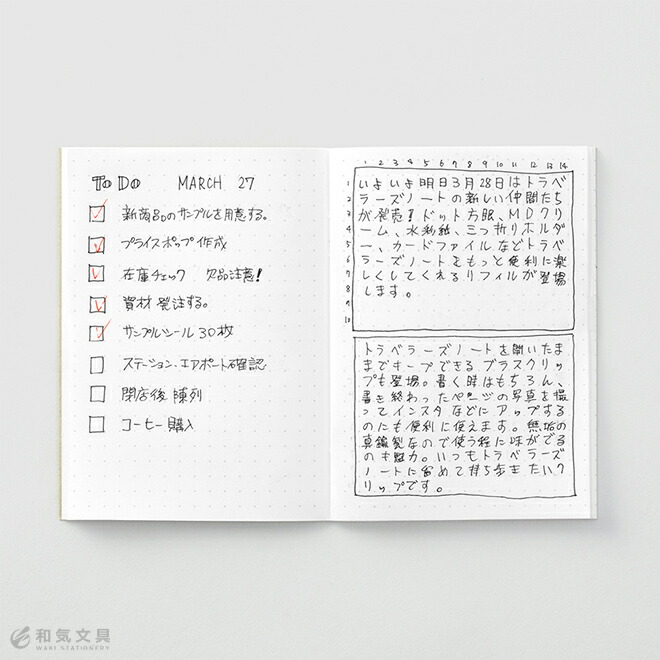 To Do MARCH 27
新商品のサンプルを用意する。
プライスポップ作成
在庫チェック 欠品注意!
資材発注する。
サンプルシール 30枚
ステーション、エアポート確認
閉店後 陳列
コーヒー購入
1 2 3 4 5 6 7 8 9 10 11 12 13 14
1 いよいよ明日3月28日はトラベ
2 ラーズノートの新しい仲間たち
3 が発売!ドット方眼、MDクリ
4 ーム、水彩紙、三つ折りホルダ
5 ー、カードファイルなどトラベ
6 ラーズノートをもっと便利に楽
7 しくしてくれるリフィルが登場
8 します。
9
10
トラベラーズノートを開いたま
までキープできるブラスクリッ
プも登場。書く時はもちろん、
書き終わったページの写真を撮
ってインスタなどにアップする
のにも便利に使えます。無垢の
真鍮製なので使う程に味がでる
のも魅力。いつもトラベラーズ
ノートに留めて持ち歩きたいク
リップです。
和気文具
WAKI STATIONERY